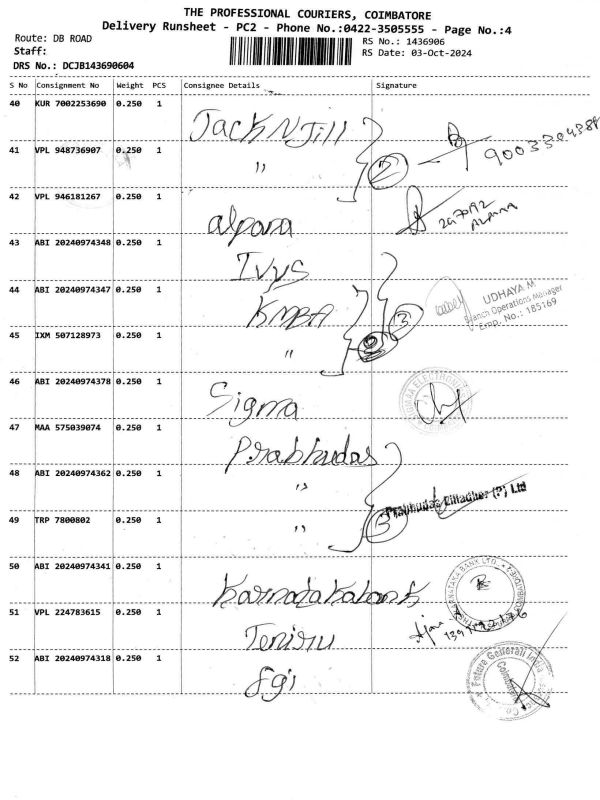 THE PROFESSIONAL COURIERS, COIMBATORE
Delivery Runsheet - PC2 - Phone No.:0422-3505555 - Page No.:4
Route: DB ROAD
RS No.: 1436906
Staff:
RS Date: 03-Oct-2024
DRS No.: DCJB143690604
S No Consignment No Weight PCS Consignee Details Signature
40 KUR 7002253690 0.250 1 Jack N Jill
9003304388
41 VPL 948736907 0.250 1 " 2
42 VPL 946181267 0.250 1 alpana
43 ABI 20240974348 0.250 1 Ivys
44 ABI 20240974347 0.250 1 KMBA 3
UDHAYA M
Branch Operations Manager
Emp. No.: 185169
45 IXM 507128973 0.250 1 "
46 ABI 20240974378 0.250 1 Sigma
47 MAA 575039074 0.250 1 Prabhudas
48 ABI 20240974362 0.250 1 "
Prabhudas Lilladher (P) Ltd
49 TRP 7800802 0.250 1 " 3
50 ABI 20240974341 0.250 1 Karnatakabank
KARNATAKA BANK LTD.
51 VPL 224783615 0.250 1
52 ABI 20240974318 0.250 1 fgi
Future Generali India
Coimbatore